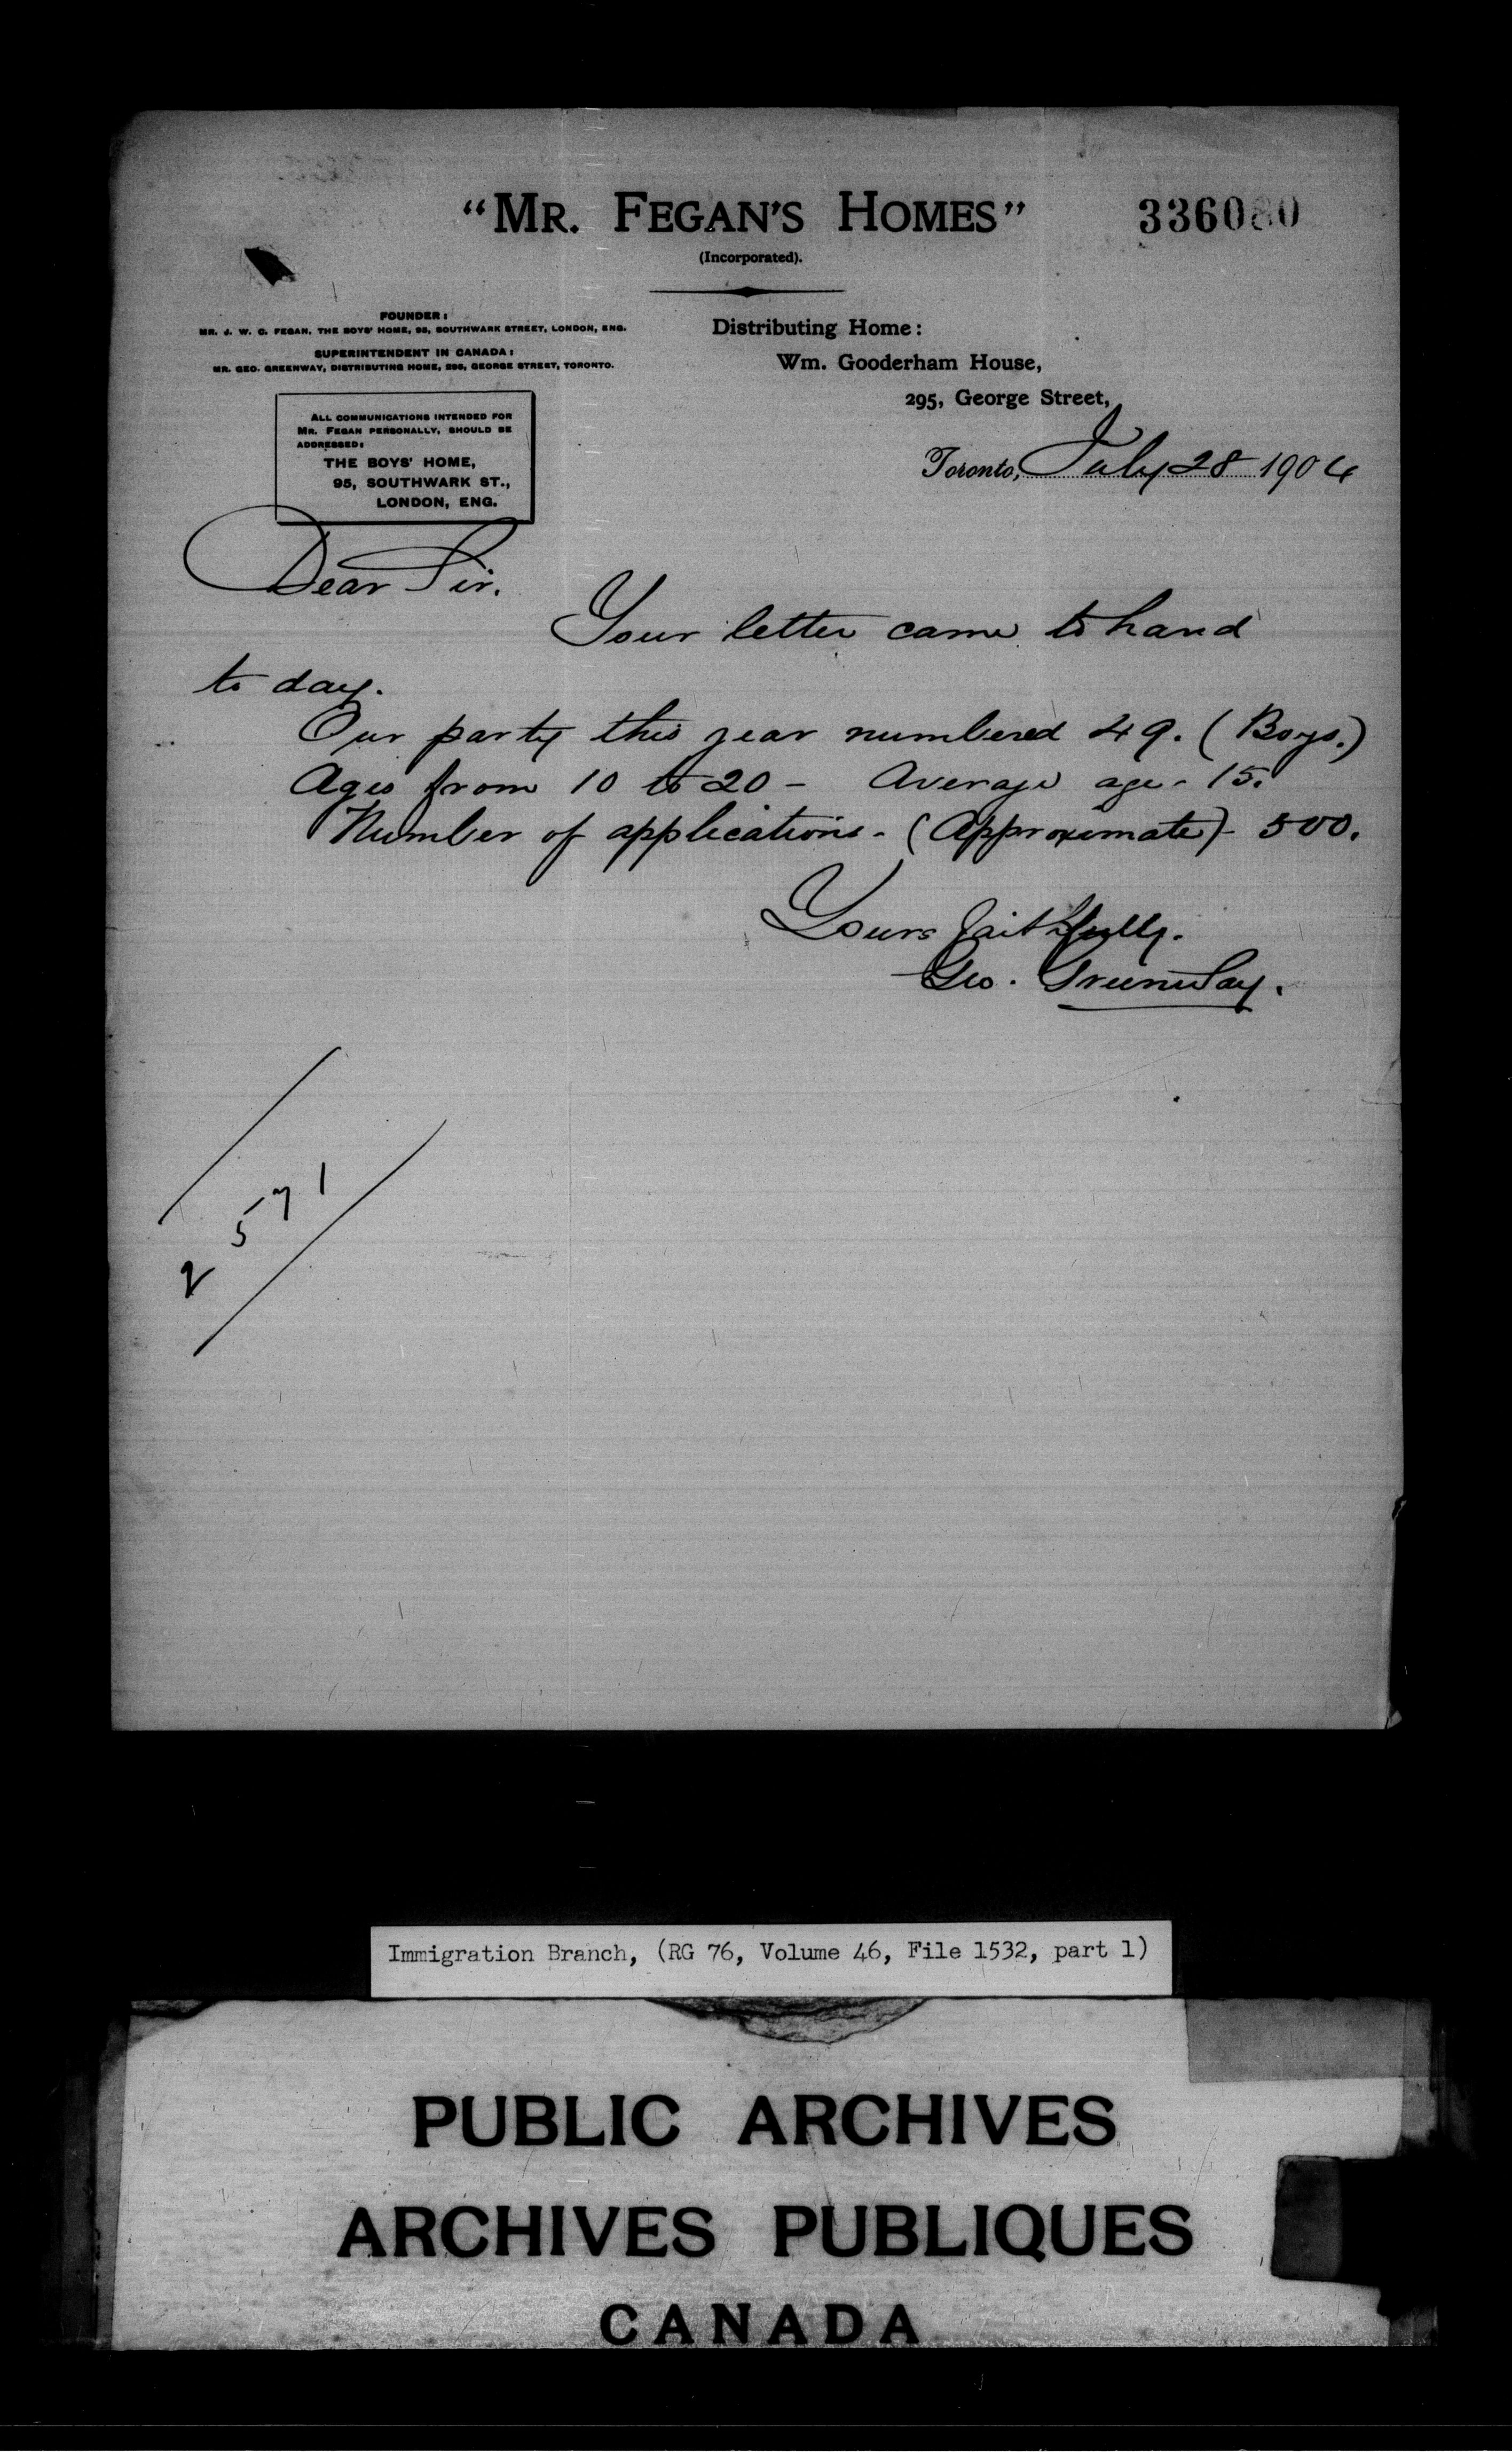 "MR. FEGAN'S HOMES"
336080
(Incorporated).
FOUNDER:
MR. J. W. C. FEGAN, THE BOYS' HOME, 95, SOUTHWARK STREET, LONDON, ENG.
SUPERINTENDENT IN CANADA:
MR. GEO. GREENWAY, DISTRIBUTING HOME, 295, GEORGE STREET, TORONTO.
ALL COMMUNICATIONS INTENDED FOR
MR. FEGAN PERSONALLY, SHOULD BE
ADDRESSED:
THE BOYS' HOME,
95, SOUTHWARK ST.,
LONDON, ENG.
Distributing Home:
Wm. Gooderham House,
295, George Street,
Toronto, July 28 1904
Dear Sir.
Your letter came to hand
to day.
Our party this year numbered 49. (Boys.)
Ages from 10 to 20 - Average age - 15.
Number of applications - (Approximate) - 500.
Yours faithfully.
Geo. Greenway.
2571
Immigration Branch, (RG 76, Volume 46, File 1532, part 1)
PUBLIC ARCHIVES
ARCHIVES PUBLIQUES
CANADA